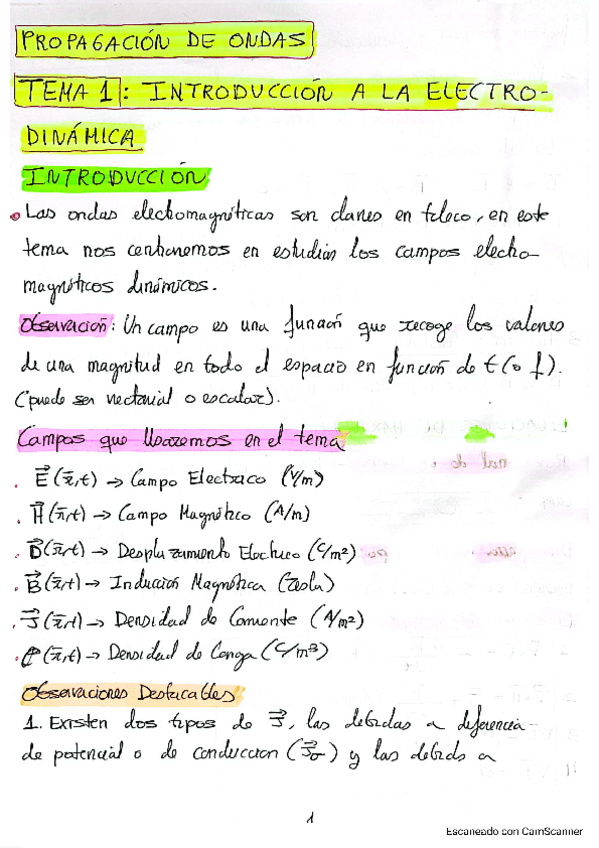 PROPAGACIÓN DE ONDAS
TEMA 1: INTRODUCCIÓN A LA ELECTRO-
DINÁMICA
INTRODUCCIÓN
Las ondas electromagnéticas son claves en teleco, en este
tema nos centraremos en estudiar los campos electro-
magnéticos dinámicos.
Observación: Un campo es una función que recoge los valores
de una magnitud en todo el espacio en función de t (o f).
(puede ser vectorial o escalar).
Campos que usaremos en el tema
. E⃗(r̄,t) → Campo Electrico (V/m)
. H⃗(r̄,t) → Campo Magnético (A/m)
. D⃗(r̄,t) → Desplazamiento Electrico (C/m²)
. B⃗(r̄,t) → Inducion Magnética (Tesla)
. J⃗(r̄,t) → Densidad de Corriente (A/m²)
. ρ(r̄,t) → Densidad de Carga (C/m³)
Observaciones Destacables
1. Existen dos tipos de J⃗, las debidas a diferencia
de potencial o de conduccion (J⃗σ) y las debido a
1
Escaneado con CamScanner